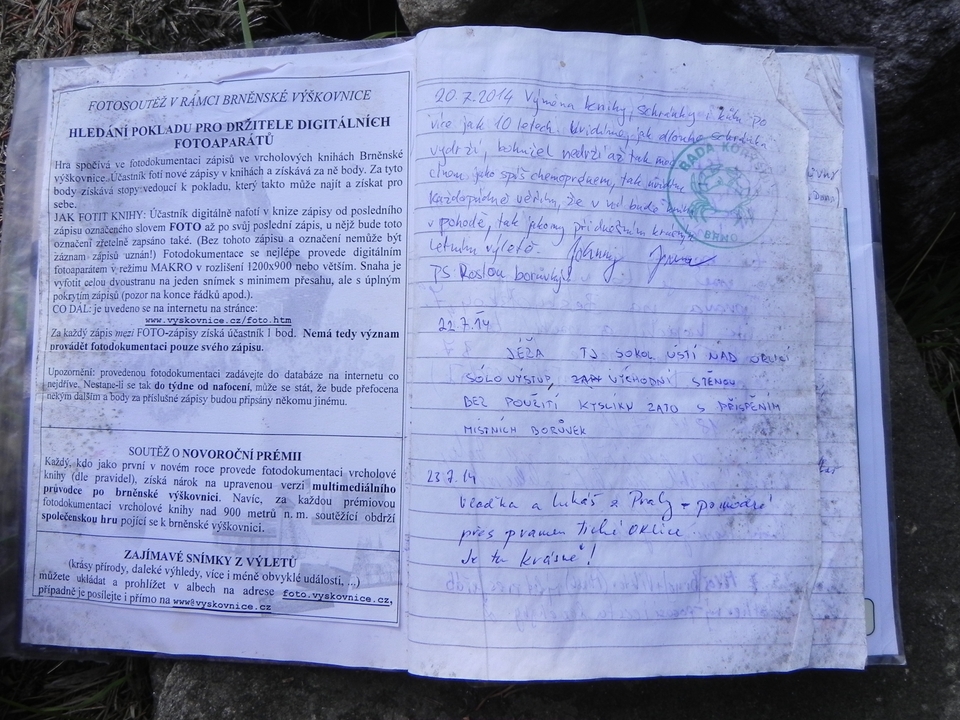 FOTOSOUTĚŽ V RÁMCI BRNĚNSKÉ VÝŠKOVNICE
HLEDÁNÍ POKLADU PRO DRŽITELE DIGITÁLNÍCH
FOTOAPARÁTŮ
Hra spočívá ve fotodokumentaci zápisů ve vrcholových knihách Brněnské
výškovnice. Účastník fotí nové zápisy v knihách a získává za ně body. Za tyto
body získává stopy vedoucí k pokladu, který takto může najít a získat pro
sebe.
JAK FOTIT KNIHY: Účastník digitálně nafotí v knize zápisy od posledního
zápisu označeného slovem FOTO až po svůj poslední zápis, u nějž bude toto
označení zřetelně zapsáno také. (Bez tohoto zápisu a označení nemůže být
záznam zápisů uznán!) Fotodokumentace se nejlépe provede digitálním
fotoaparátem v režimu MAKRO v rozlišení 1200x900 nebo větším. Snaha je
vyfotit celou dvoustranu na jeden snímek s minimem přesahu, ale s úplným
pokrytím zápisů (pozor na konce řádků apod.).
CO DÁL: je uvedeno se na internetu na stránce:
www.vyskovnice.cz/foto.htm
Za každý zápis mezi FOTO-zápisy získá účastník 1 bod. Nemá tedy význam
provádět fotodokumentaci pouze svého zápisu.
Upozornění: provedenou fotodokumentaci zadávejte do databáze na internetu co
nejdříve. Nestane-li se tak do týdne od nafocení, může se stát, že bude přefocena
někým dalším a body za příslušné zápisy budou připsány někomu jinému.
SOUTĚŽ O NOVOROČNÍ PRÉMII
Každý, kdo jako první v novém roce provede fotodokumentaci vrcholové
knihy (dle pravidel), získá nárok na upravenou verzi multimediálního
průvodce po brněnské výškovnici. Navíc, za každou prémiovou
fotodokumentaci vrcholové knihy nad 900 metrů n. m. soutěžící obdrží
společenskou hru pojící se k brněnské výškovnici.
ZAJÍMAVÉ SNÍMKY Z VÝLETŮ
(krásy přírody, daleké výhledy, více i méně obvyklé události, ...)
můžete ukládat a prohlížet v albech na adrese foto.vyskovnice.cz,
případně je posílejte i přímo na www@vyskovnice.cz
20.7.2014 Výměna knihy, schránky i po
více jak 10 letech. Uvidíme, jak dlouho schránka
vydrží, bohužel nedrží až tak
jako spíš chemoprenem, tak uvidíme
Každopádně věřím, že v ní bude kniha
v pohodě, tak jako my při dnešním krásném
letním výletě. Johnny
PS Rostou borůvky!
RADA
BRNO
22.7.14
JÉŽA TJ SOKOL ÚSTÍ NAD ORLICÍ
SÓLOVÝSTUP, VÝCHODNÍ STĚNOU
BEZ POUŽITÍ KYSLÍKU ZATO S PŘISPĚNÍM
MÍSTNÍCH BORŮVEK
23.7.14
Vlaďka a Lukáš z Prahy -
přes pramen Tiché Orlice.
Je tu krásně!